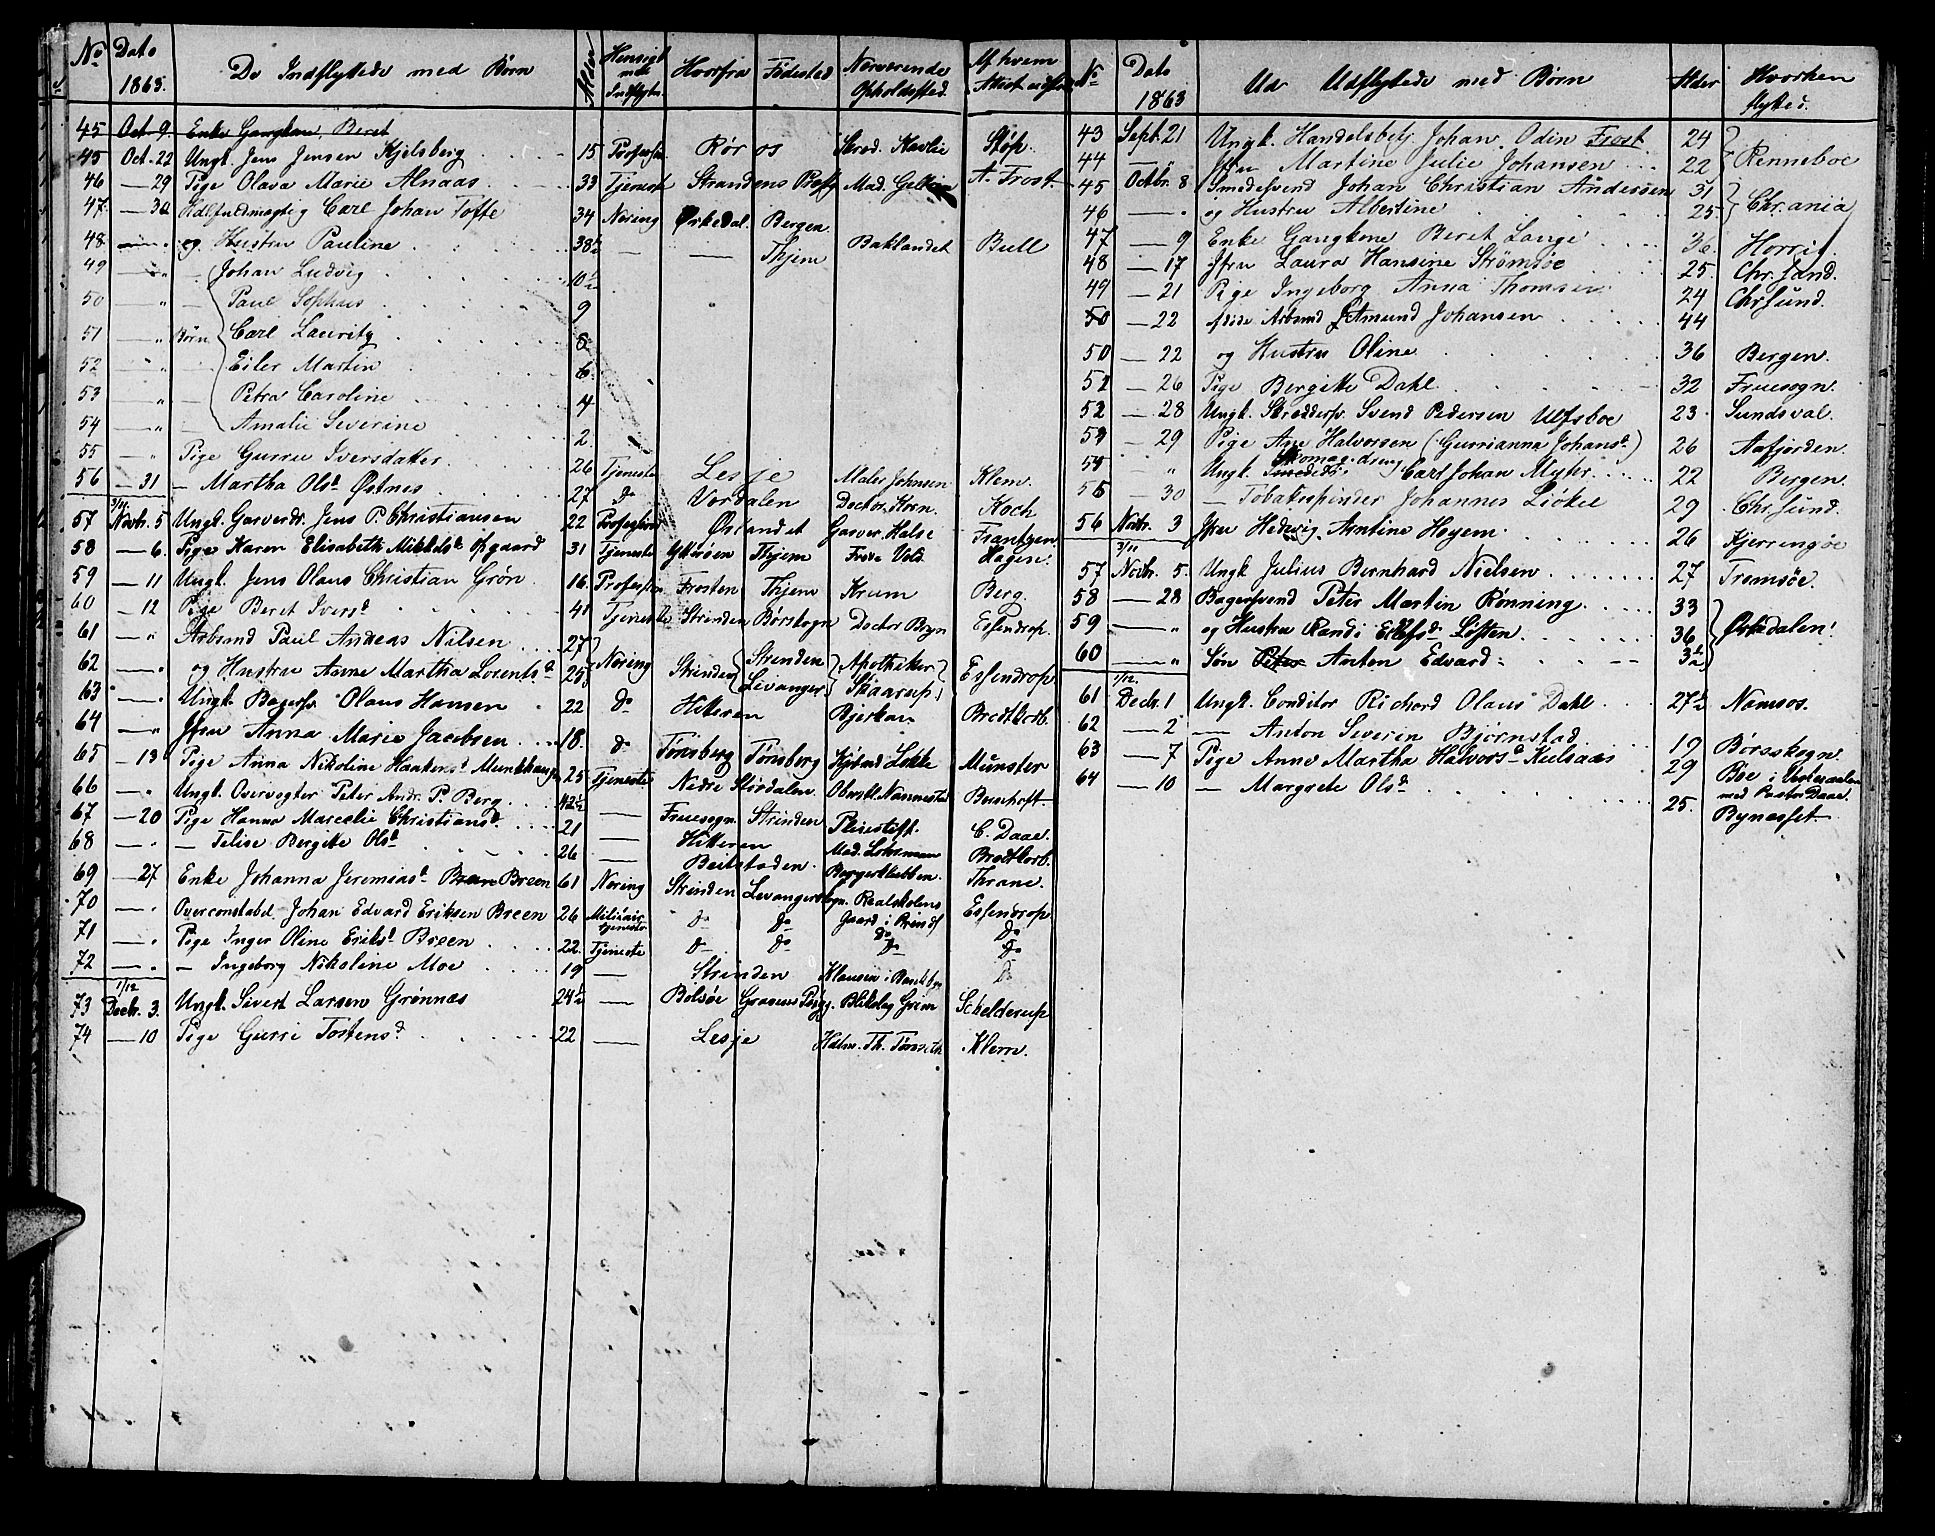 No Dato 1863. De Indflyttede med Børn Alder Hensigt med Indflytn. Hvorfra Fødested Nærværende Opholdssted. Af hvem Attest udst.
45 Oct. 9. Enke Gangkone, Beret
45 Oct. 22 Ungk. Jens Jensen Kjelsberg 15 Profession Røros Skred. Havlie Støp.
46 — 29 Pige Olava Marie Alnaas 33 Tjeneste Strandens Præstg. Mad. A. Frost.
47 — 30 Halfuldmægtig Carl Johan Tofte 34 Næring Ørkedal. Bergen
48 — " og Hustru Pauline 38½ — — Thjem Baklandet Bull
49 — " Johan Ludvig 10½
50 — " Paul Sophus 9
51 — " Børn Carl Lauritz 8
52 — " Eiler Martin 6.
53 — " Petra Caroline 4
54 — " Amalie Severine 2.
55 — " Pige Gurru Iversdatter 26 Tjeneste Lesje Maler Johnsen Klem.
56 — 31 — Martha Olsd. Østnes 27 do Værdalen Doctor Horn. Koch
3/11
57 Novbr. 5 Ungk. Garverdr. Jens P. Christiansen 22 Profession Ørlandet Garver Halse Frantzen
58 — 6. Pige Karen Elisabeth Mikkelsd. Opgaard 31 Tjeneste Ytterøen Thjem Frøken Vold Hagen.
59 — 11 Ungk. Jens Olaus Christian Grøn 16. Profession Frosten Thjem Krum Berg.
60 — 12 Pige Beret Iversd. 41 Tjeneste Strinden Børsskogn Doctor Bryn Essendrop.
61 — " Arbmd Paul Andreas Nilsen 27 Næring Strinden Strinden Apotheker Essendrop
62 — " og Hustrue Anne Martha Lorentsd. 25 Levanger Skaarup
63 — " Ungk. Bagersv. Olaus Hansen 22 do Hitteren Bjerkan Bredtkorb.
64 — " Jfru Anna Marie Jacobsen 18. do Tønsberg Tønsberg Kjøbmd Lokke Münster
65 — 13 Pige Anna Nikoline Haakensd. Munkhaugen 25 Tjeneste Nedre Størdalen. Obrstl. Nannestad Bernhoft
66 — " Ungk. Overvegter Peter Andr. P. Berg. 42½ — Fruesogn. Strinden Pleiestift. C. Daae.
67 — 20 Pige Hanna Marcelie Christiansd. 21 — Hitteren Mad. Løhrman Bredtkorb.
68 — " — Felise Bergitte Olsd. 26 — Beitstaden. Borgerklubben. Thrane.
69 — 27 Enke Johanna Jeremiasd. Breen 61 Næring Strinden Levanger Sogn. Realskolens Gaard i Prindsg. Essendrop
70 — " Overconstabel Johan Edvard Eriksen Breen 26 Militairtjeneste do do do do
71 — " Pige Inger Oline Eriksd. Breen 22. Tjeneste do do do do
72 — " — Ingeborg Nikoline Moe 19 — Strinden Klausen i do
1/12
73 Decbr. 3. Ungk. Sivert Larsen Grønnæs 24½ — Bolsøe Graaens Præstgj. Blikslag Grøm Schelderup
74 — 10 Pige Gurri Tostensd. 22 — Lesje Kdm. Th. Tønseth Klem.

No Dato 1863 Ud Udflyttede med Børn Alder Hvorhen flyttede.
43 Septb. 21 Ungk. Handelsbetj. Johan. Odin Frost 24 Renneboe
44 — Jfru Martine Julie Johansen 22
45 Octbr. 8 Smedesvend Johan Christian Andersen 31 Chr.ania
46 — " og Hustru Albertine 25
47 — 9 Enke Gangkone Beret Lange 36 Horrig.
48 — 17 Jfru Laura Hansine Strømsøe 25. Chr.sand.
49 — 21 Pige Ingeborg Anna Thomsen 24 Chrsund.
50 — 22 Arbmd Amund Johansen 44
50 — 22 og Hustru Oline 36 Bergen.
51 — 26 Pige Bergitte Dahl 32 Fruesogn.
52 — 28 Ungk. Skreddersv. Svend Pedersen Ulfsboe 23 Sundsval.
53 — 29 Pige Ane Halvorsen (Gurrianna Johansd.) 26 Aafjorden.
54 — " Ungk. Skomag.dreng Carl Johan Myhr. 22 Bergen.
55 — 30 — Tobaksspinder Johannes Liøkel 29 Chr.sund.
56 Novbr. 3 Jfru Hedevig Arntine Høyem 26 Kjerringøe
3/11
57 Novbr. 5. Ungk Julius Bernhard Nielsen 27 Tromsøe.
58 — 28 Bagersvend Peter Martin Rønning 33 Ørkedalen.
59 — " og Hustru Randi Eilefsd. Løften 36
60 — " Søn Peter Anton Edvard 3½
1/12.
61 Decbr. 1 Ungk. Conditor Richard Olaus Dahl 27½ Namsos.
62 — 2 — Anton Severin Bjørnstad 19 Børsskogn.
63 — 7 Pige Anne Martha Halvorsd. Kulsaas 29 Bøe i Vesteraalen med Pastor Daae.
64 — 10 — Margrete Olsd. 25. Bynæsset